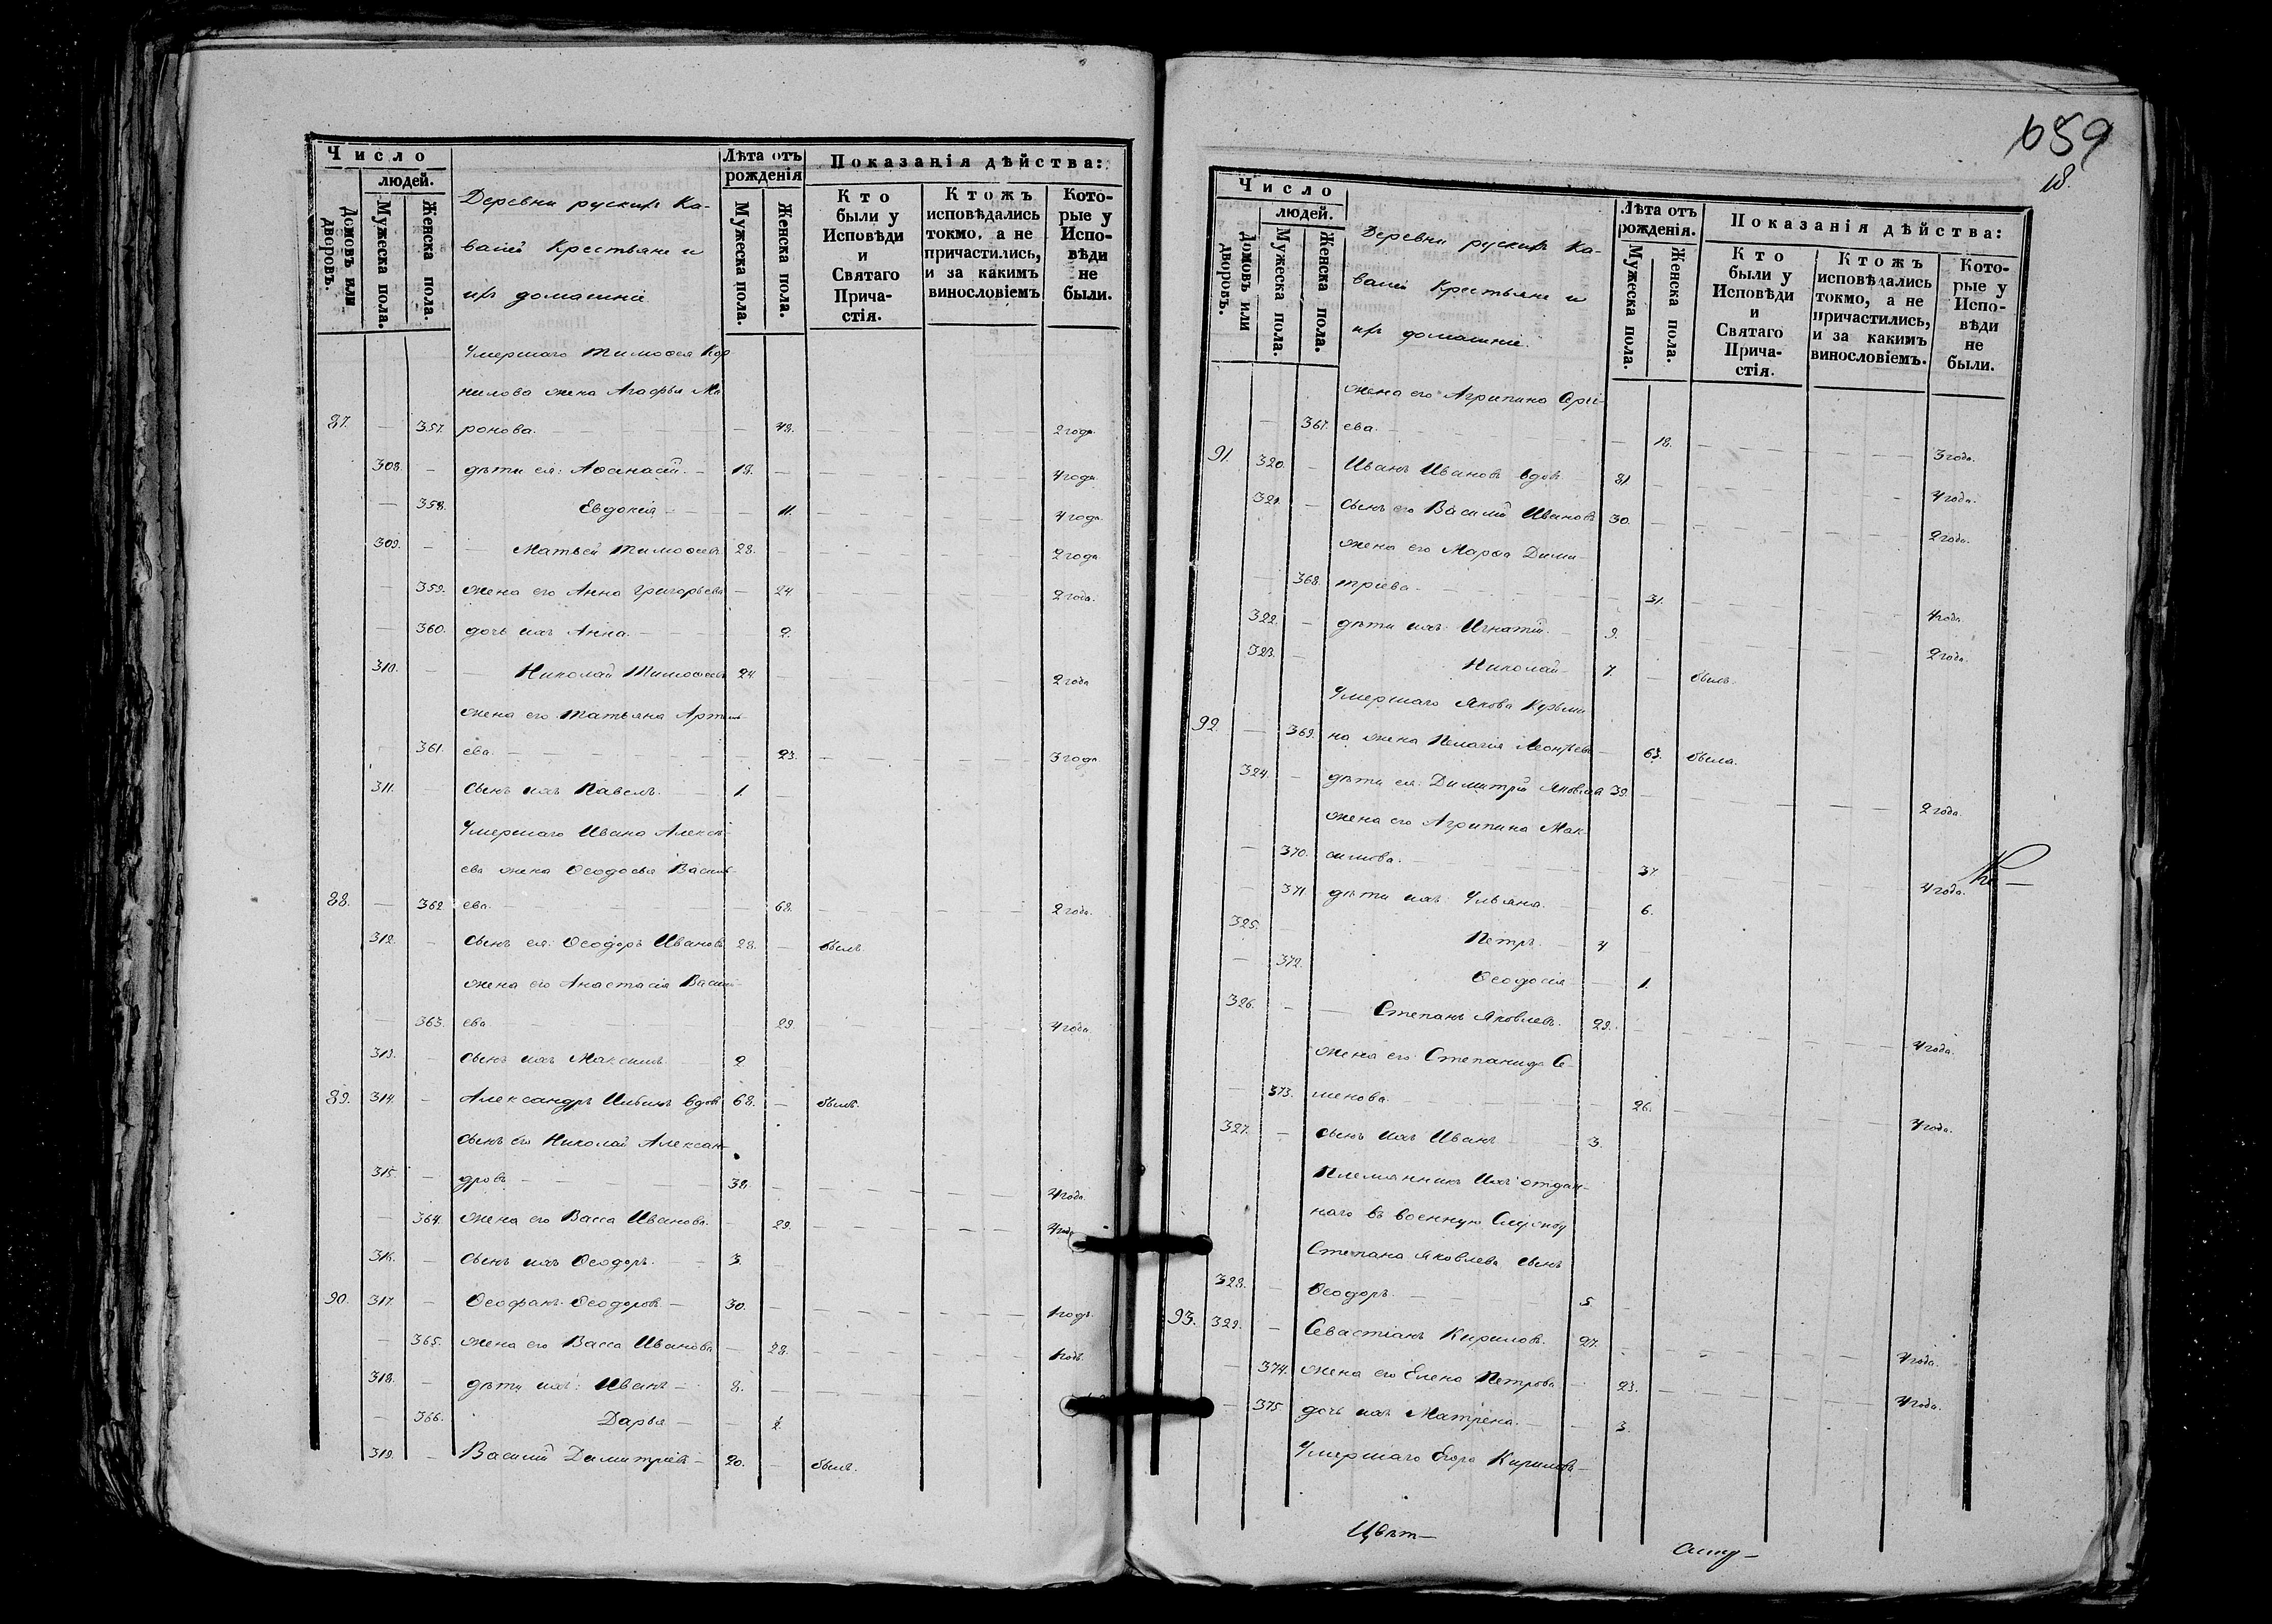 Число
людей.
Домовъ или дворовъ.
Мужеска пола.
Женска пола.
Деревни руских Ка-
валей Крестьяне и
ихъ домашніе.
Лѣта отъ рожденія
Мужеска пола.
Женска пола.
Показанія дѣйства:
Кто были у Исповѣди и Святаго Прича-стія.
Ктожъ исповѣдались токмо, а не причастились, и за какимъ винословіемъ
Кото-рые у Испо-вѣди не были.
Умершаго Тимоѳея Кор
нилова жена Агафья Ми
87. — 357. ронова. — 48. 2 года.
308. — дѣти ея: Аѳанасій. 18. — 4 года
— 358. Евдокія — 11. 4 года
309. — Матвей Тимоѳеевъ 28. — 2 года
— 359. жена его Анна Григорьева — 24. 2 года.
— 360. дочь ихъ Анна. 2.
310. — Николай Тимоѳеевъ 24 — 2 года
жена его Татьяна Артемь-
361. ева. — 23. 3 года
311. — сынъ ихъ Павелъ. 1. —
Умершаго Ивана Алексѣ-
ева жена Ѳеодосья Василь-
88. — 362. ева. — 68. 2 года.
312. — сынъ ея: Ѳеодоръ Ивановъ 28. — былъ.
жена его Анастасія Василь-
— 363. ева 29. 4 года.
313. — сынъ ихъ Максимъ 2
89. 314. — Александръ Ильинъ вдовъ 68. — былъ.
сынъ его Николай Алексан-
315. — дровъ 38. — 4 года.
— 364. жена его Васса Иванова. — 29. 4 года
316. — сынъ ихъ Ѳеодоръ. 3.
90. 317. — Ѳеофанъ Ѳеодоровъ 30. — 1 годъ.
— 365. жена его Васса Иванова — 28. 1 годъ.
318. — дѣти ихъ: Иванъ — 8. —
— 366. Дарья — —
319. — Василій Димитріевъ — 20. — былъ.
659
18.
Число
людей.
Домовъ или дворовъ.
Мужеска пола.
Женска пола.
Деревни руских Ка-
валей Крестьяне и
ихъ домашніе.
Лѣта отъ рожденія.
Мужеска пола.
Женска пола.
Показанія дѣйства:
Кто были у Исповѣди и Святаго Прича-стія.
Ктожъ исповѣдались токмо, а не причастились, и за какимъ винословіемъ.
Кото-рые у Испо-вѣди не были.
жена его Агрипина Сергі-
— 367. ева. — 18. 3 года.
91. 320. — Иванъ Ивановъ вдовъ 81. — 4 года.
321. — сынъ его Василій Ивановъ 30. — 2 года.
жена его Марѳа Дими-
— 368. тріева — 31. 4 года
322. — дѣти ихъ: Игнатій. 9. — 2 года.
323. — Николай 7. — былъ.
Умершаго Якова Кузьми
92. — 369. на жена Пелагія Леонтьева — 63. была.
324. — дѣти ея: Димитрій Яковлевъ 39. — 2 года.
жена его Агрипина Мак-
— 370. симова. 37 4 года.
— 371. дѣти ихъ: Ульяна. 6.
325. Петръ. 4 —
— 372. Ѳеодосія — 1.
326. — Степанъ Яковлевъ. 29. — 4 года.
жена его Степанида Се-
— 373. менова. 26. 4 года.
327. — сынъ ихъ Иванъ 3.
Племянникъ ихъ отдан-
наго въ военную Службу
Степана Яковлева сынъ
328. — Ѳеодоръ. 5. —
93. 329. — Севастіанъ Кириловъ. 27. — 4 года.
— 374. жена его Елена Петрова — 23. 4 года.
— 375 дочь ихъ Матрена. — 3.
Умершаго Егора Кирилов-